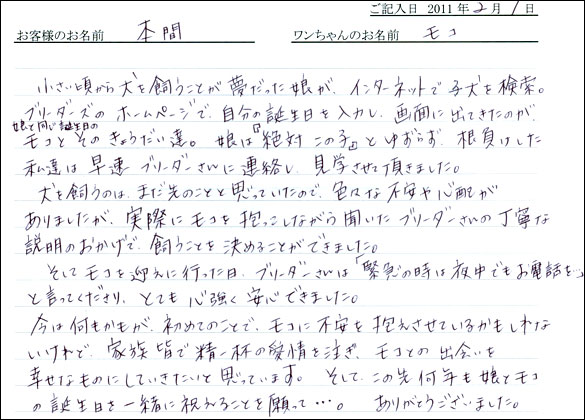 ご記入日 2011年2月1日
お客様のお名前 本間 ワンちゃんのお名前 モコ
小さい頃から犬を飼うことが夢だった娘が、インターネットで子犬を検索。
ブリーダーズのホームページで、自分の誕生日を入力し、画面に出てきたのが、
娘と同じ誕生日の
モコとそのきょうだい達。娘は「絶対この子」とゆずらず、根負けした
私達は早速ブリーダーさんに連絡し、見学させて頂きました。
犬を飼うのは、まだ先のことと思っていたので、色々な不安や心配が
ありましたが、実際にモコを抱っこしながら聞いたブリーダーさんの丁寧な
説明のおかげで、飼うことを決めることができました。
そしてモコを迎えに行った日、ブリーダーさんは「緊急の時は夜中でもお電話を…」
と言ってくださり、とても心強く安心できました。
今は何もかもが、初めてのことで、モコに不安を抱えさせているかもしれな
いけれど、家族皆で精一杯の愛情を注ぎ、モコとの出会いを
幸せなものにしていきたいと思っています。そして、この先何年も娘とモコ
の誕生日を一緒に祝えることを願って…。ありがとうございました。